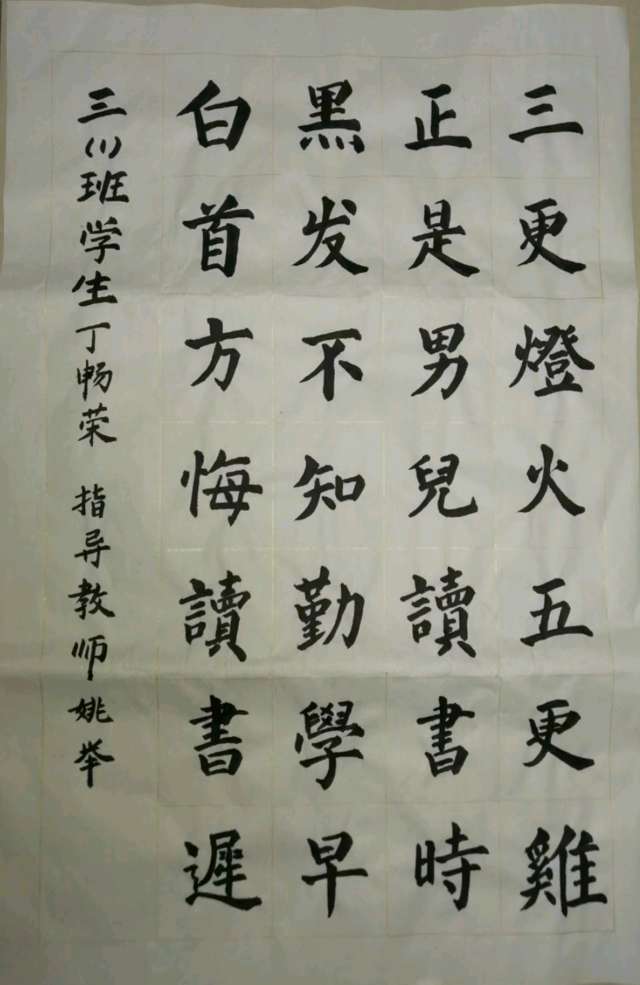 三更燈火五更雞
正是男兒讀書時
黑发不知勤學早
白首方悔讀書遲
三(1)班学生丁畅荣 指导教师姚举